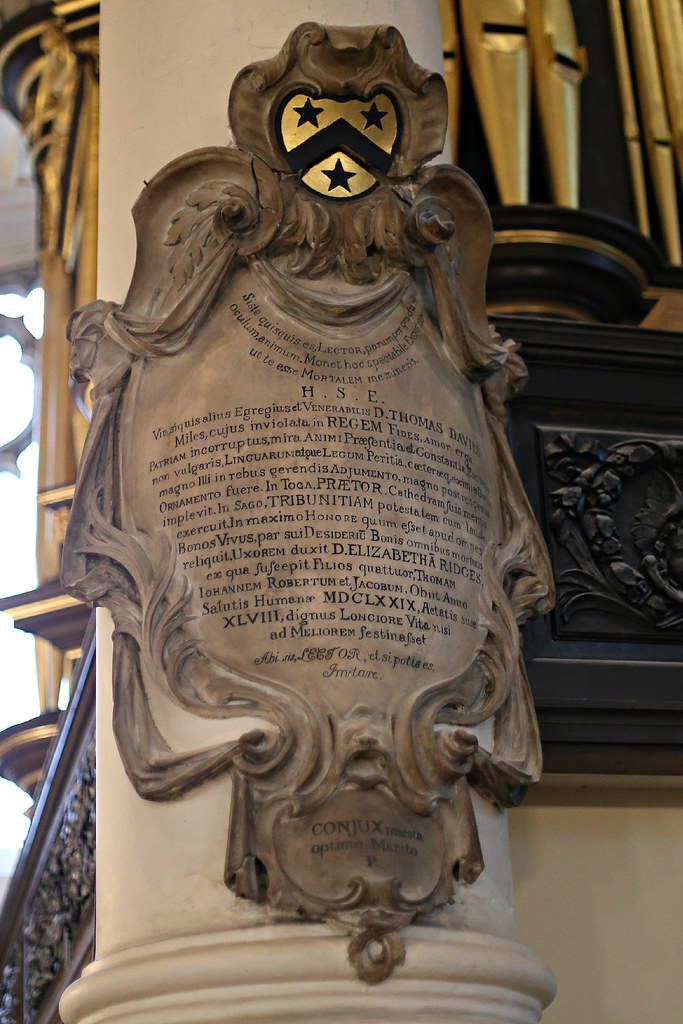 Siste quisquis es, LECTOR, parumper
oculum, animum. Monet hoc spectabile
ut te esse MORTALEM memineris.
H. S. E.
Vir siquis alius Egregius et VENERABILIS D. THOMAS
Miles, cujus inviolata in REGEM FIDES, amor erga
PATRIAM incorruptus, mira ANIMI Præsentia et Constantia,
non vulgaris, LINGUARUM atque LEGUM Peritia,
magno Illi in rebus gerendis ADJUMENTO, magno posteris
ORNAMENTO fuere. In TOGA, PRÆTOR, Cathedram suis meritis
implevit. In SAGO, TRIBUNITIAM potestatem cum laude
exercuit. In maximo HONORE quum eſset apud omnes
BONOS VIVUS, par sui DESIDERIŪ Bonis omnibus mortuus
reliquit. UXOREM duxit D. ELIZABETHĀ RIDGES
ex qua suſcepit FILIOS quattuor, THOMAM
IOHANNEM ROBERTUM et JACOBUM. Obiit Anno
Salutis Humanæ MDCLXXIX, Aetatis suæ
XLVIII, dignus LONGIORE Vita nisi
ad MELIOREM festinaſset
Abi sis, LECTOR, et si potis es,
Imitare.
CONJUX mæsta
optimo Marito
P.